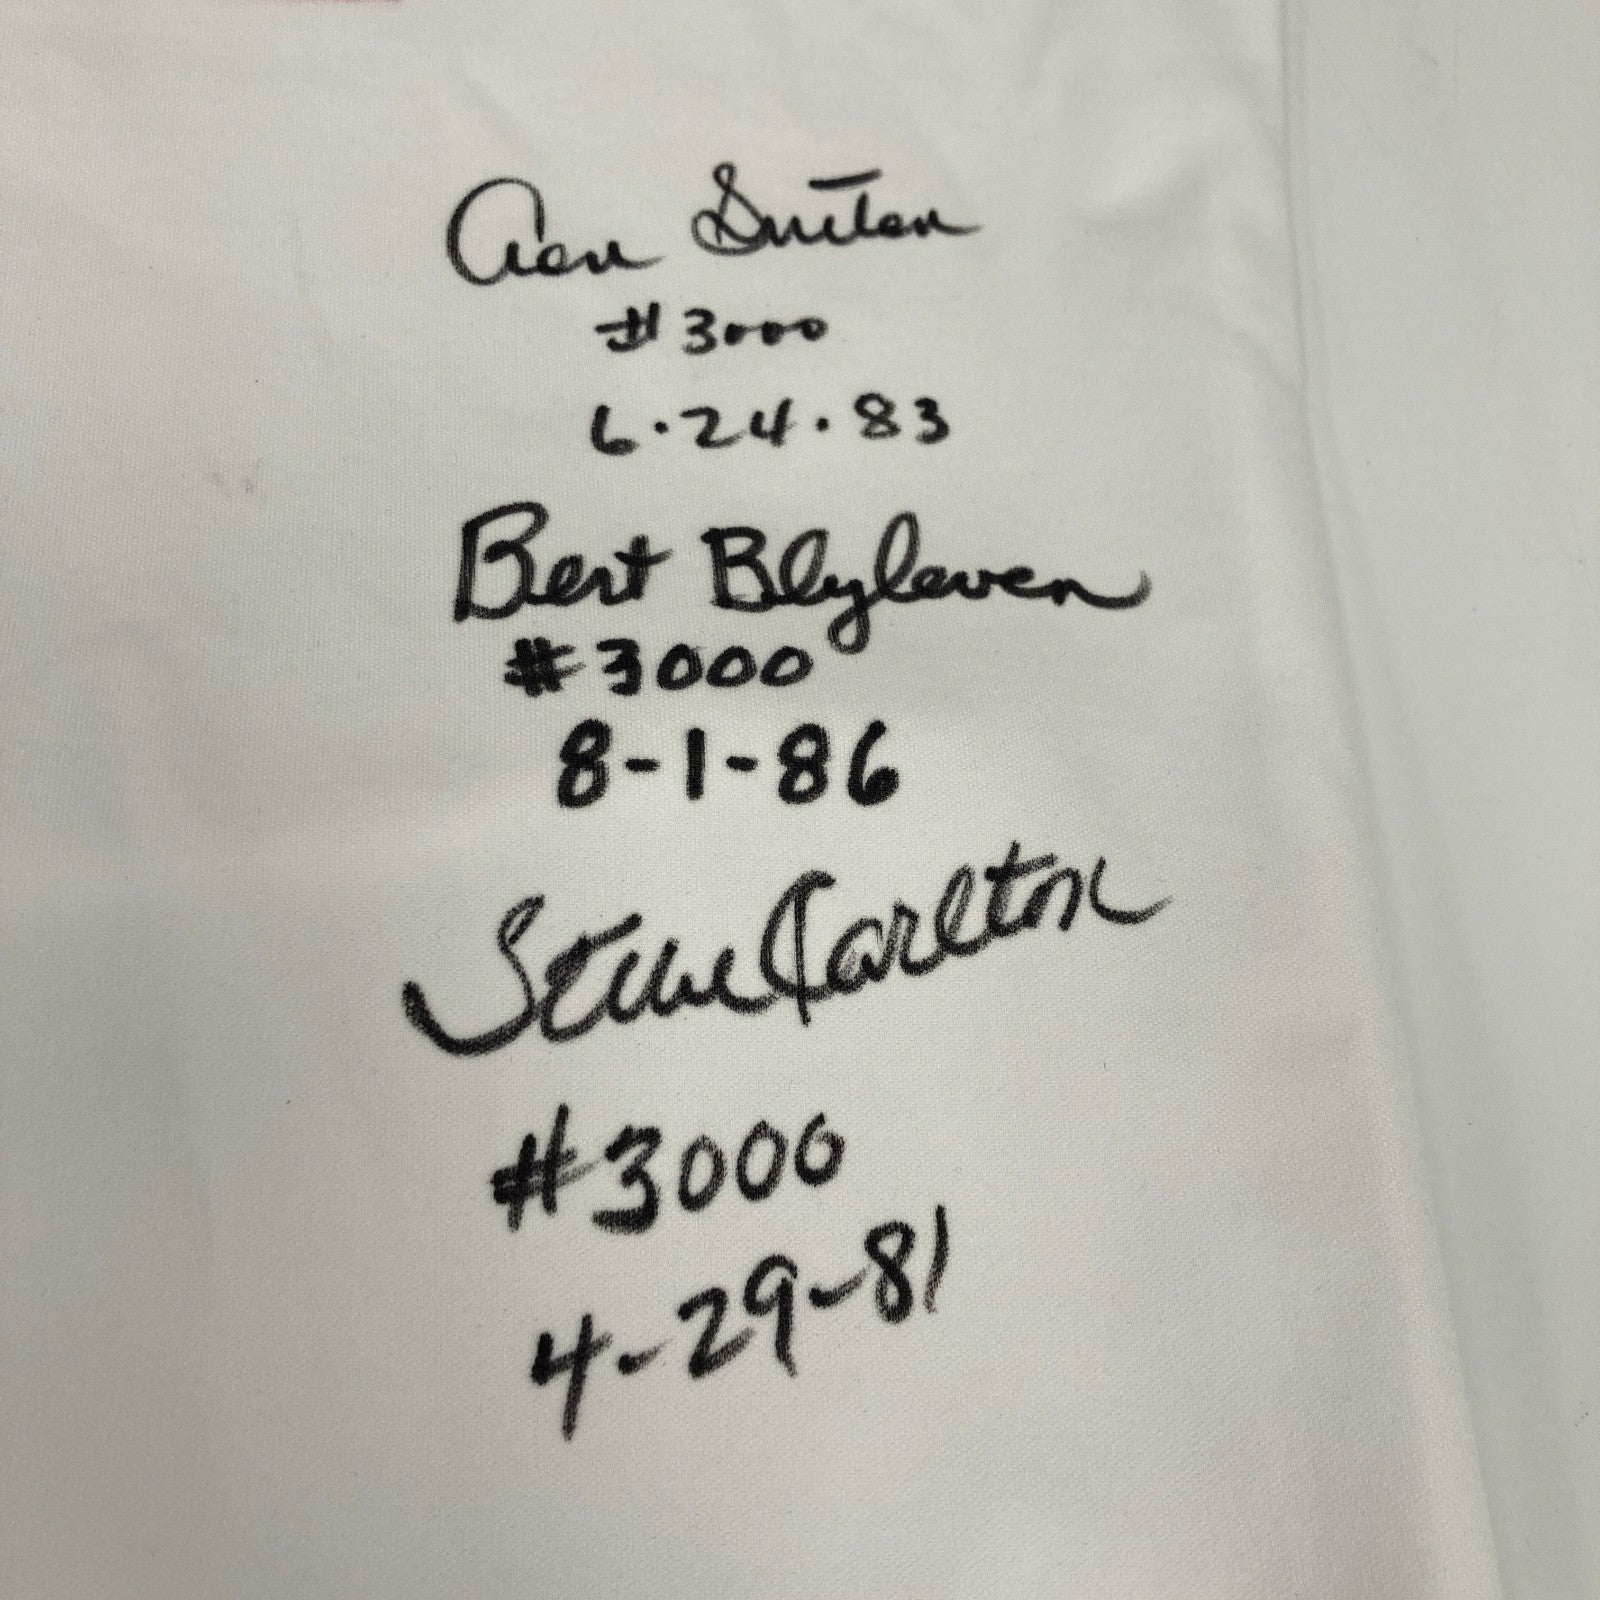 Don Sutton
#3000
6.24.83
Bert Blyleven
#3000
8-1-86
Steve Carlton
#3000
4-29-81